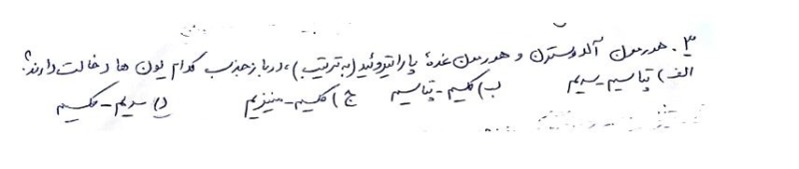 ۳. هورمون آلدوسترن و هورمون غدهٔ پاراتیروئید (به ترتیب)، در بازجذب کدام یون ها دخالت دارند؟
الف) پتاسیم - سدیم ب) کلسیم - پتاسیم ج) کلسیم - منیزیم د) سدیم - کلسیم